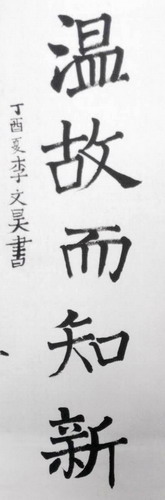 温故而知新
丁酉夏李文昊書